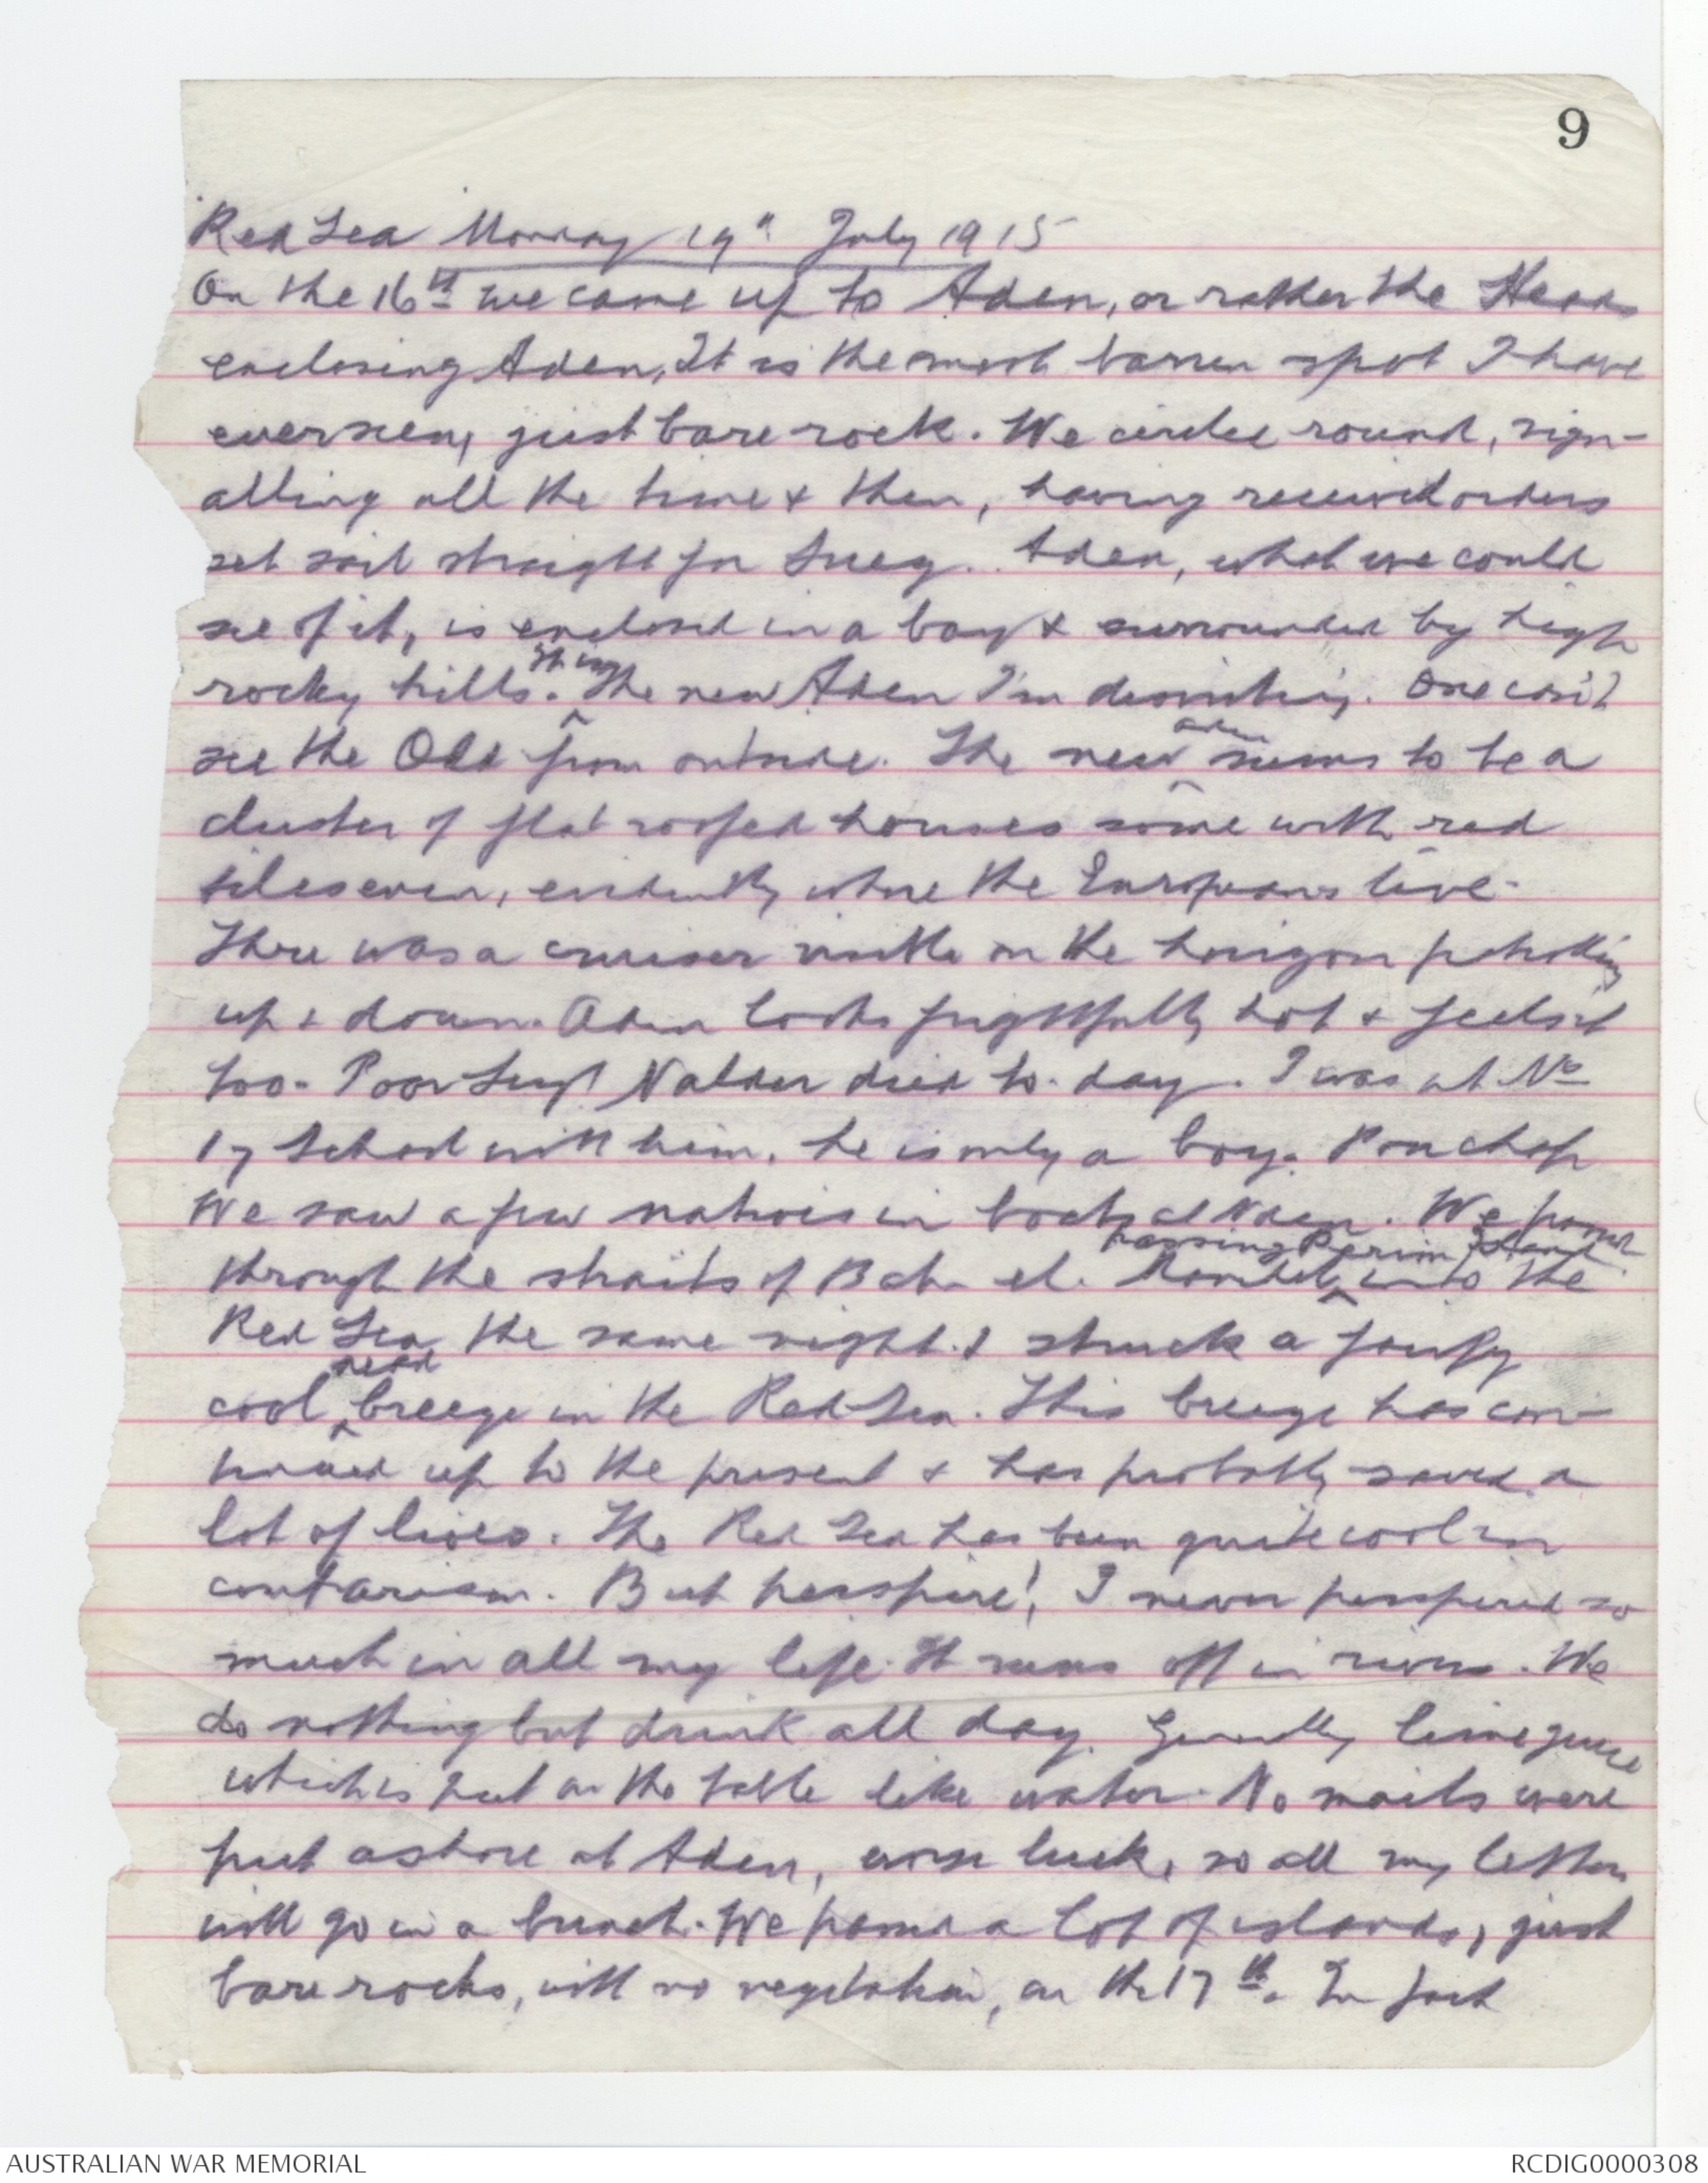 9
Red Sea Monday 19th July 1915
On the 16th we came up to Aden, or rather the Heads
enclosing Aden. It is the most barren spot I have
ever seen, just bare rock. We circled round, sign-
alling all the time & then, having received orders
set sail straight for Suez. Aden, what we could
see of it, is enclosed in a bay & surrounded by high
rocky hills. It is the new Aden I'm describing. One can't
see the Old from outside. The new Aden seems to be a
cluster of flat roofed houses some with red
tiles even, evidently where the Europeans live.
There was a cruiser visible on the horizon patrolling
up & down. Aden looks frightfully hot & feels it
too. Poor Sergt Nalder died to-day. I was at No
17 School with him, he is only a boy. Poor chap
We saw a few natives in boats at Aden. We passed
through the straits of Bab-el-Mandeb, passing Perim Island into the
Red Sea the same night & struck a
cool head breeze in the Red Sea. This breeze has con-
tinued up to the present & has probably saved a
lot of lives. The Red Sea has been quite cool in
comparison. But perspire! I never perspired so
much in all my life. It runs off in rivers. We
do nothing but drink all day. Generally lime juice
which is put on the table like water. No mails were
put ashore at Aden, worse luck, so all my letters
will go in a bunch. We passed a lot of islands, just
bare rocks, with no vegetation, on the 17th. In fact
AUSTRALIAN WAR MEMORIAL
RCDIG0000308